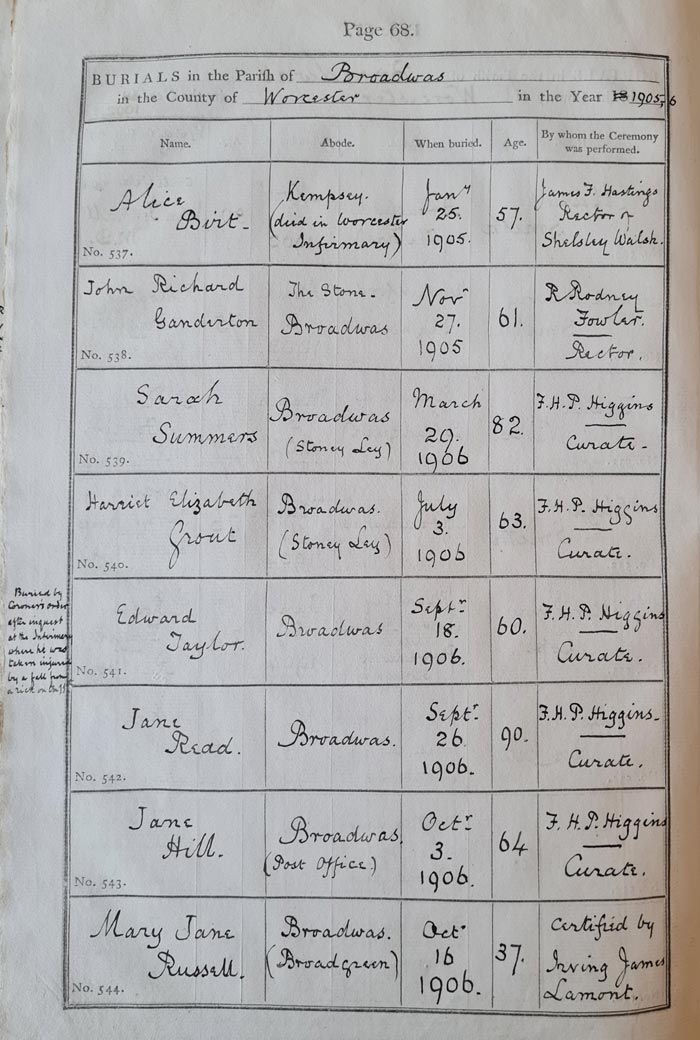 Page 68.
BURIALS in the Parish of Broadwas
in the County of Worcester in the Year 18 1905, 6
Name. Abode. When buried. Age. By whom the Ceremony
was performed.
Alice
Birt.
No. 537.
Kempsey.
(died in Worcester
Infirmary)
Jany
25.
1905.
57.
James F. Hastings
Rector of
Shelsley Walsh.
John Richard
Ganderton
No. 538.
The Stone.
Broadwas
Novr
27.
1905
61.
R Rodney
Fowler.
Rector.
Sarah
Summers
No. 539.
Broadwas
(Stoney Ley)
March
29.
1906
82.
F.H.P. Higgins
Curate.
Harriet Elizabeth
Grout
No. 540.
Broadwas.
(Stoney Ley)
July
3.
1906
63.
F.H.P. Higgins
Curate.
Buried by
Coroners order
after inquest
at the Infirmary
where he was
taken injured
by a fall from
a rick on the
Edward
Taylor.
No. 541.
Broadwas
Septr
18.
1906.
60.
F.H.P. Higgins
Curate.
Jane
Read.
No. 542.
Broadwas.
Septr
26
1906.
90.
F.H.P. Higgins.
Curate.
Jane
Hill.
No. 543.
Broadwas.
(Post Office)
Octr
3.
1906.
64
F.H.P. Higgins
Curate.
Mary Jane
Russell.
No. 544.
Broadwas.
(Broadgreen)
Octr
16
1906.
37.
Certified by
Irving James
Lamont.